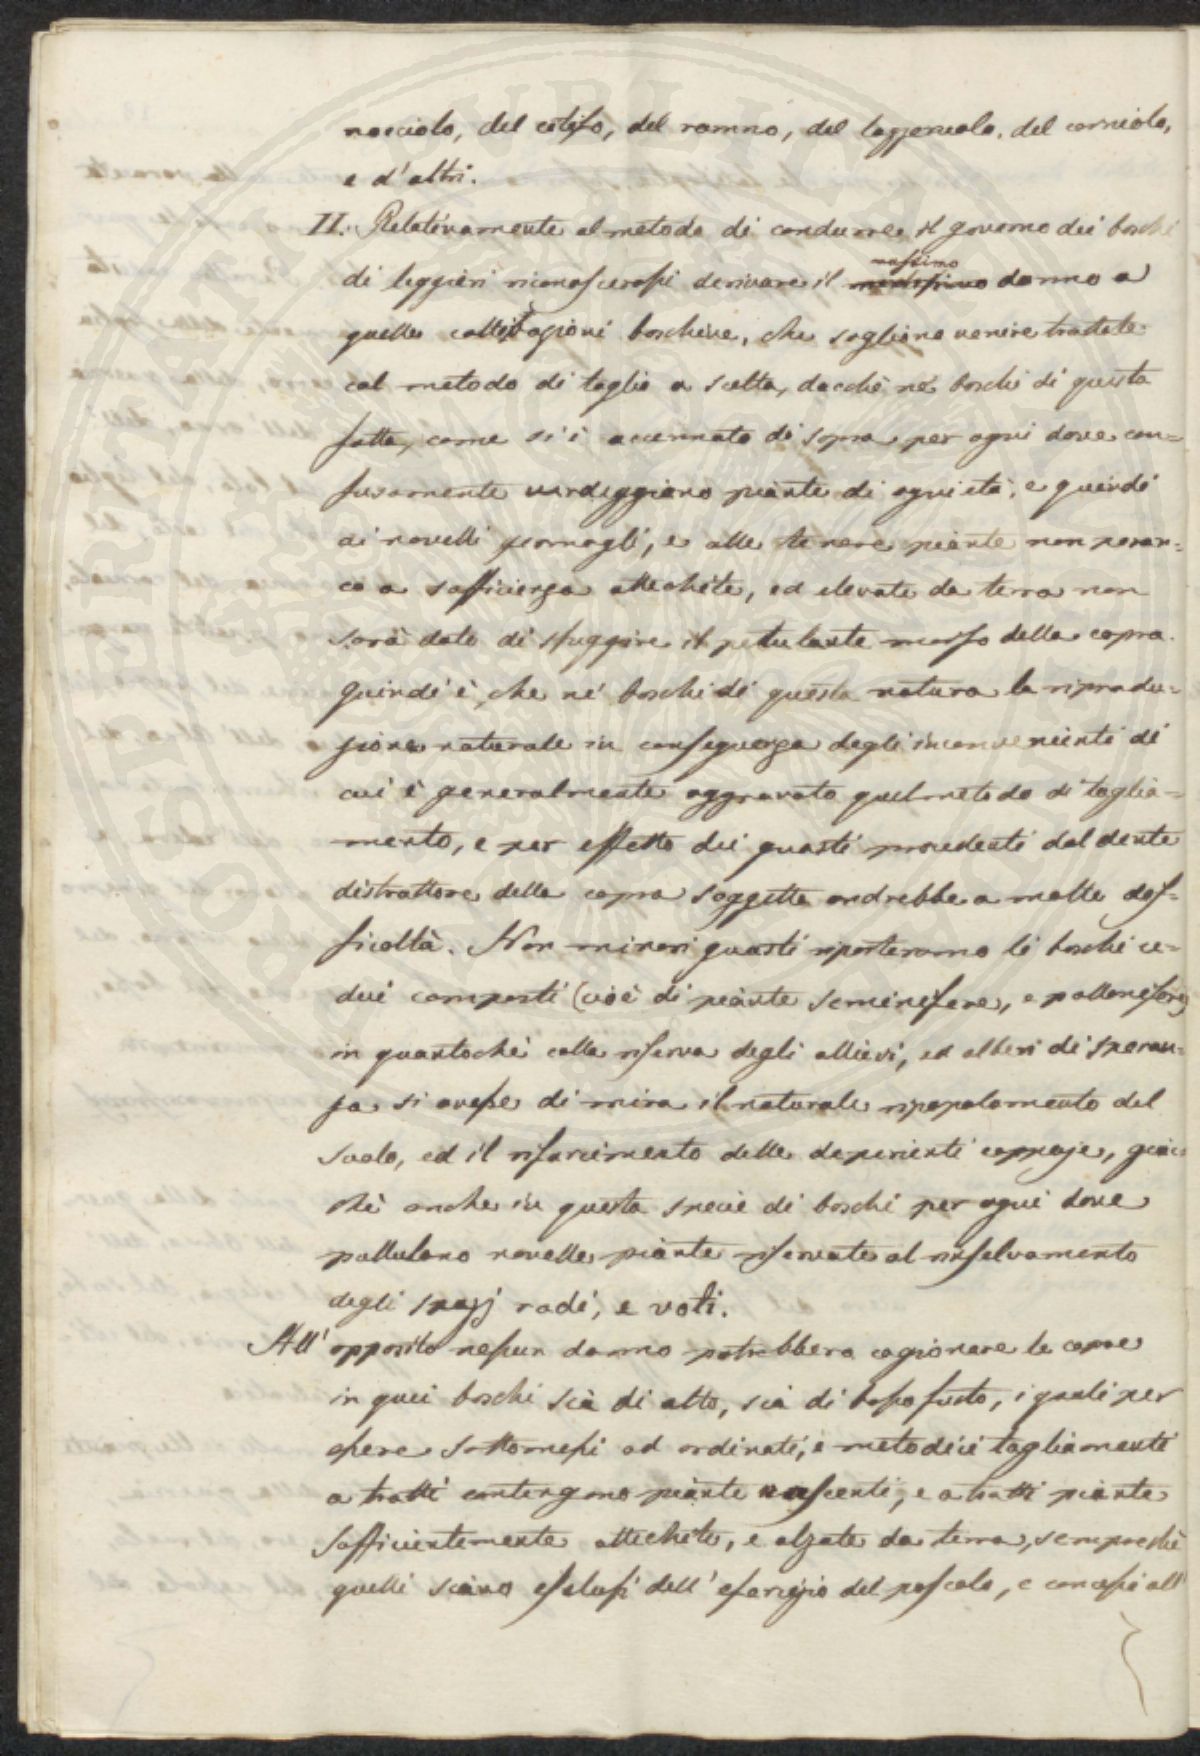 nocciolo, del citiso, del ramno, del lazzeruolo, del corniolo,
e d'altri.
II. Relativamente al metodo di condurre il governo dei boschi
massimo
di leggieri riconoscerassi derivare il danno a
quelle coltivagioni boschive, che sogliono venire trattate
col metodo di taglio a scelta, dacchè né boschi di questa
fatta, come si è accennato di sopra per ogni dove con=
fusamente verdeggiano piante di ogni età, e quindi
ai novelli germogli, e alle tenere piante non peran=
co a sufficienza attechite, ed elevate da terra non
sarà dato di sfuggire il petulante morso della capra.
Quindi è, che né boschi di questa natura la riprodu=
zione naturale in conseguenza degli inconvenienti di
cui è generalmente aggravato quel metodo di taglia=
mento, e per effetto dei guasti procedenti dal dente
distruttore della capra soggetta andrebbe a molte dif=
ficoltà. Non minori guasti riporteranno li boschi ce=
dui composti (cioè di piante seminifere, e pollonifere)
in quantochè colla riserva degli allievi, ed alberi di speran=
za si avesse di mira il naturale ripopolamento del
suolo, ed il risarcimento delle deperienti ceppaje, giac
chè anche in questa specie di boschi per ogni dove
pullulano novelle piante riservate al rinselvamento
degli spazj radi, e voti.
All' opposito nessun danno potrebbero cagionare le capre
in quei boschi sia di alto, sia di basso fusto, i quali per
essere sottomessi ad ordinati, e metodici tagliamenti
a tratti contengono piante nascenti, e a tratti piante
sufficientemente attechite, e alzate da terra, sempreché
quelli siano esclusi dell' esercizio del pascolo, e concessi all'